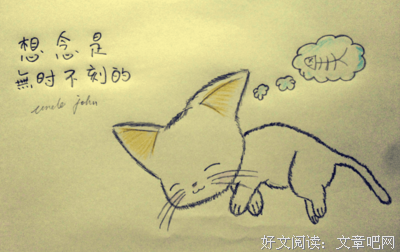 想念是
無时不刻的
uncle john
好文阅读：文章吧网